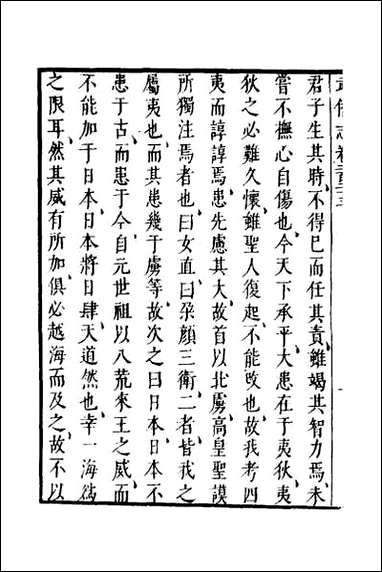 武備志卷二百二十三
君子生其時不得已而任其責雖竭其智力焉未
嘗不撫心自傷也今天下承平大患在于夷狄夷
狄之必難久懷雖聖人復起不能改也故我考四
夷而諄諄焉患先慮其大故首以北虜高皇聖謨
所獨注焉者也曰女直曰朶顏三衛二者皆我之
屬夷也而其患幾于虜等故次之曰日本日本不
患于古而患于今自元世祖以八荒來王之威而
不能加于日本日本將日肆天道然也幸一海為
之限耳然其威有所加俱必越海而及之故不以